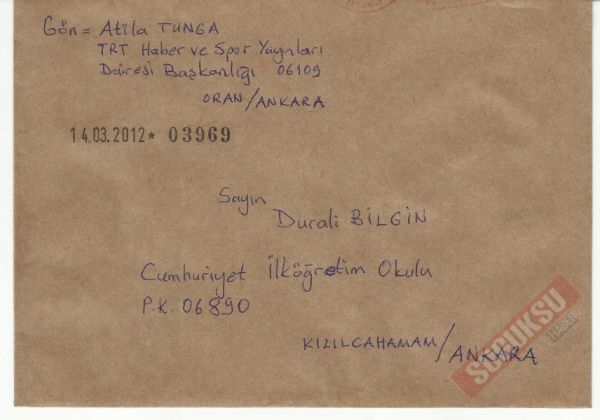 Gön = Atila TUNGA
TRT Haber ve Spor Yayınları
Dairesi Başkanlığı 06109
ORAN/ANKARA
14.03.2012* 03969
Sayın
Durali BİLGİN
Cumhuriyet İlköğretim Okulu
P.K. 06890
KIZILCAHAMAM/ANKARA
SOĞUKSU
HABER